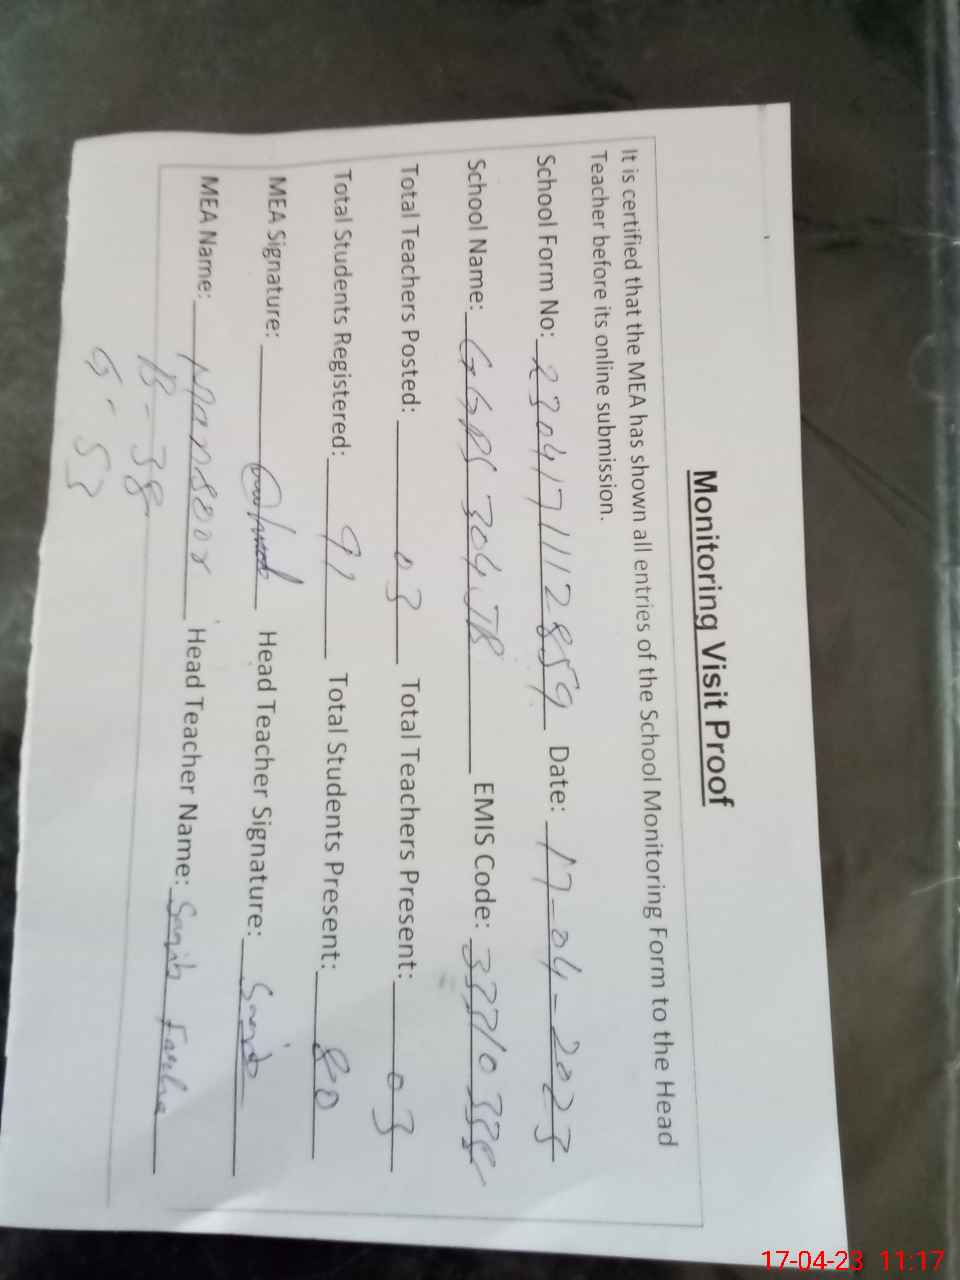 Monitoring Visit Proof
It is certified that the MEA has shown all entries of the School Monitoring Form to the Head
Teacher before its online submission.
School Form No: 2304171112859 Date: 17-04-2023
School Name: GGPS 304 JB EMIS Code:
Total Teachers Posted: 03 Total Teachers Present: 03
Total Students Registered: 91 Total Students Present: 80
MEA Signature: Head Teacher Signature:
MEA Name: Mansoor Head Teacher Name:
B - 38
G - 53
17-04-23 11:17